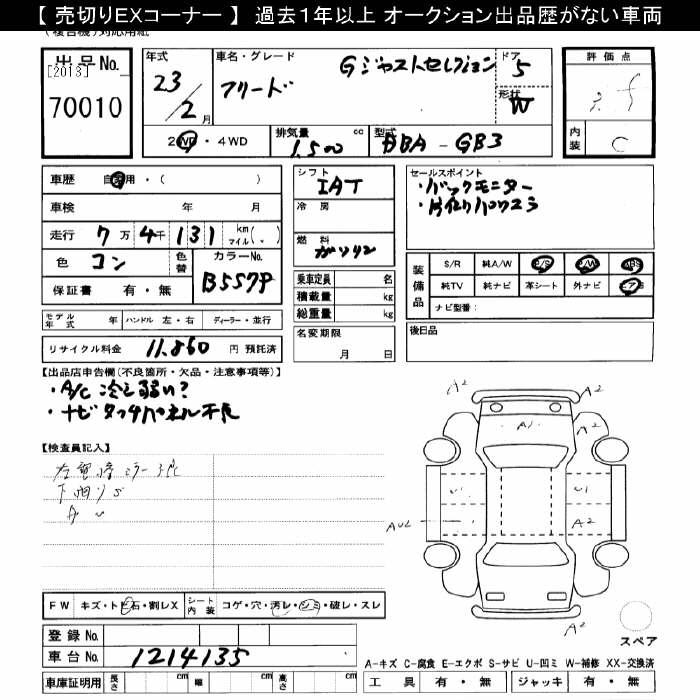 【 売切りEXコーナー 】 過去1年以上 オークション出品歴がない車両
(複合機)対応用紙
出品No.
[2013]
70010
年式
23/2月
車名・グレード
フリード Gジャストセレクション
ドア
5
形状
W
評価点
内装
C
2WD・4WD
排気量 1,500 cc
型式 DBA - GB3
車歴 自家用・( )
車検 年 月
走行 7万4千131 km マイル( 、 )
色 コン
色替
カラーNo.
B557P
保証書 有・無
モデル年式 年
ハンドル 左・右
ディーラー・並行
リサイクル料金 11,860 円 預託済
シフト
IAT
冷房
燃料
ガソリン
乗車定員 名
積載量 kg
総重量 kg
名変期限
月 日
セールスポイント
・バックモニター
・片側パワスラ
装備品
S/R 純A/W P/S P/W ABS
純TV 純ナビ 革シート 外ナビ エアB
ナビ型番:
後日品
【出品店申告欄(不良箇所・欠品・注意事項等)】
・A/C 冷え弱い?
・ナビタッチパネル不良
【検査員記入】
FW キズ・トビ石・割レX
シート内装 コゲ・穴・汚レ・シミ・破レ・スレ
登録No.
車台No. 1214135
車庫証明用 長さ cm 幅 cm 高さ cm
A2
A2
A1
A2
U1
AU2
A2
A2
スペア
A-キズ C-腐食 E-エクボ S-サビ U-凹ミ W-補修 XX-交換済
工具 有・無 ジャッキ 有・無